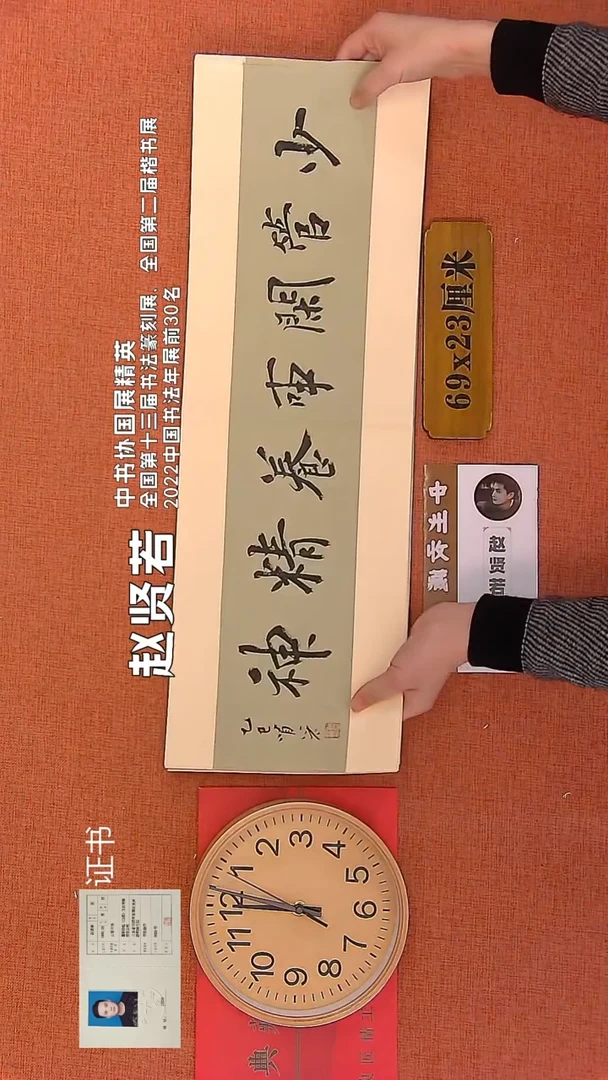 赵贤若
中书协国展精英
全国第十三届书法篆刻展、全国第二届楷书展
2022中国书法年展前30名
少管閑事養精神
乙巳賢若
69x23厘米
证书
12
1
2
3
4
5
6
7
8
9
10
11
典